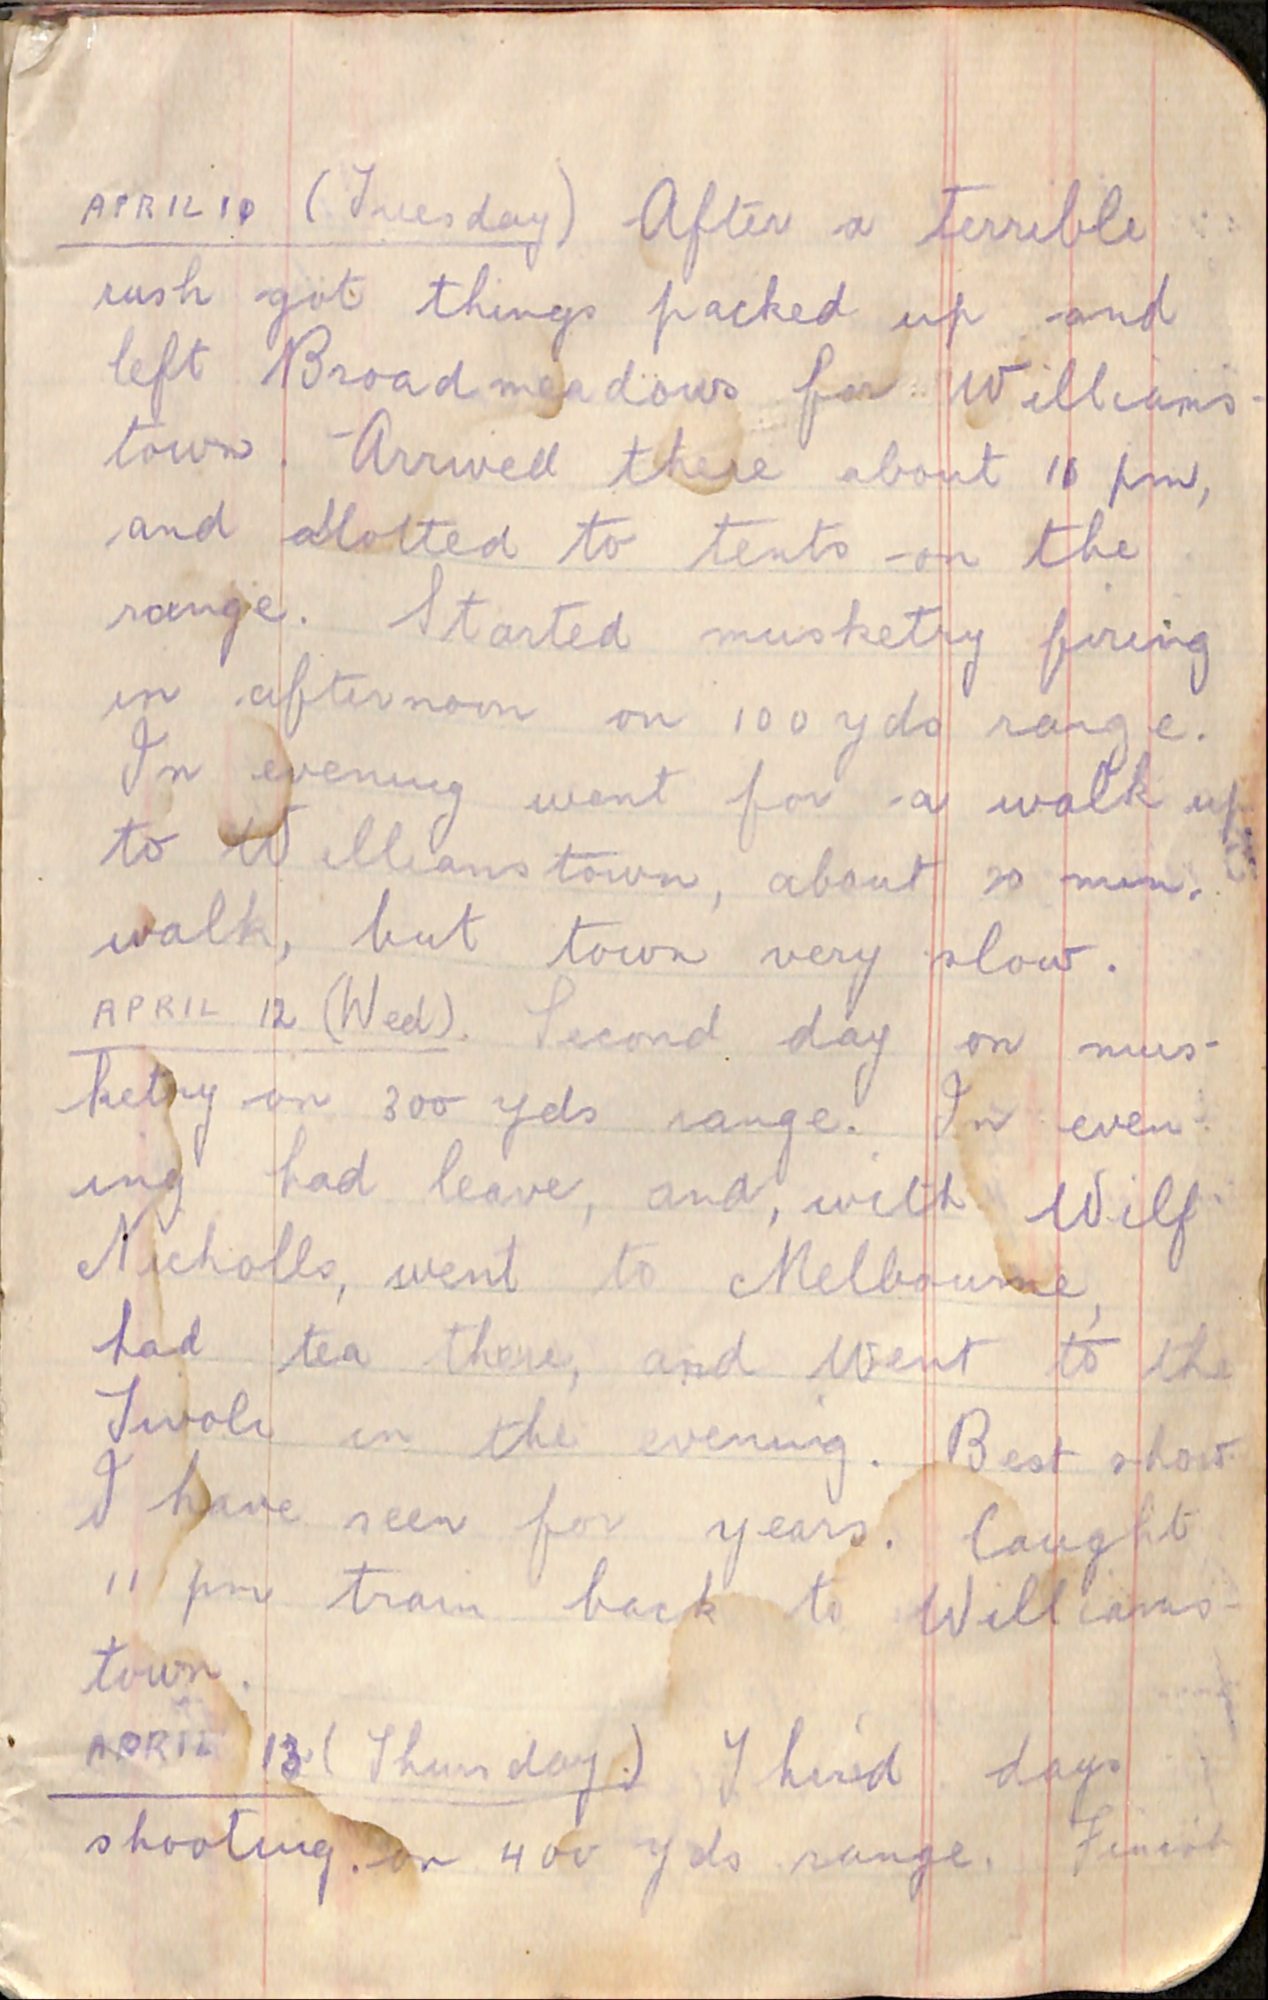 APRIL 10 (Tuesday) After a terrible
rush got things packed up and
left Broadmeadows for Williams-
town. Arrived there about 11 pm,
and allotted to tents on the
range. Started musketry firing
in afternoon on 100 yds range.
In evening went for a walk up
to Williamstown, about 20 min.
walk, but town very slow.
APRIL 12 (Wed). Second day on mus-
ketry on 300 yds range. In even-
ing had leave, and, with Wilf
Nicholls, went to Melbourne,
had tea there, and went to the
Tivoli in the evening. Best show
I have seen for years. Caught
11 pm train back to Williams-
town.
APRIL 13 (Thursday.) Third days
shooting on 400 yds range. Finish